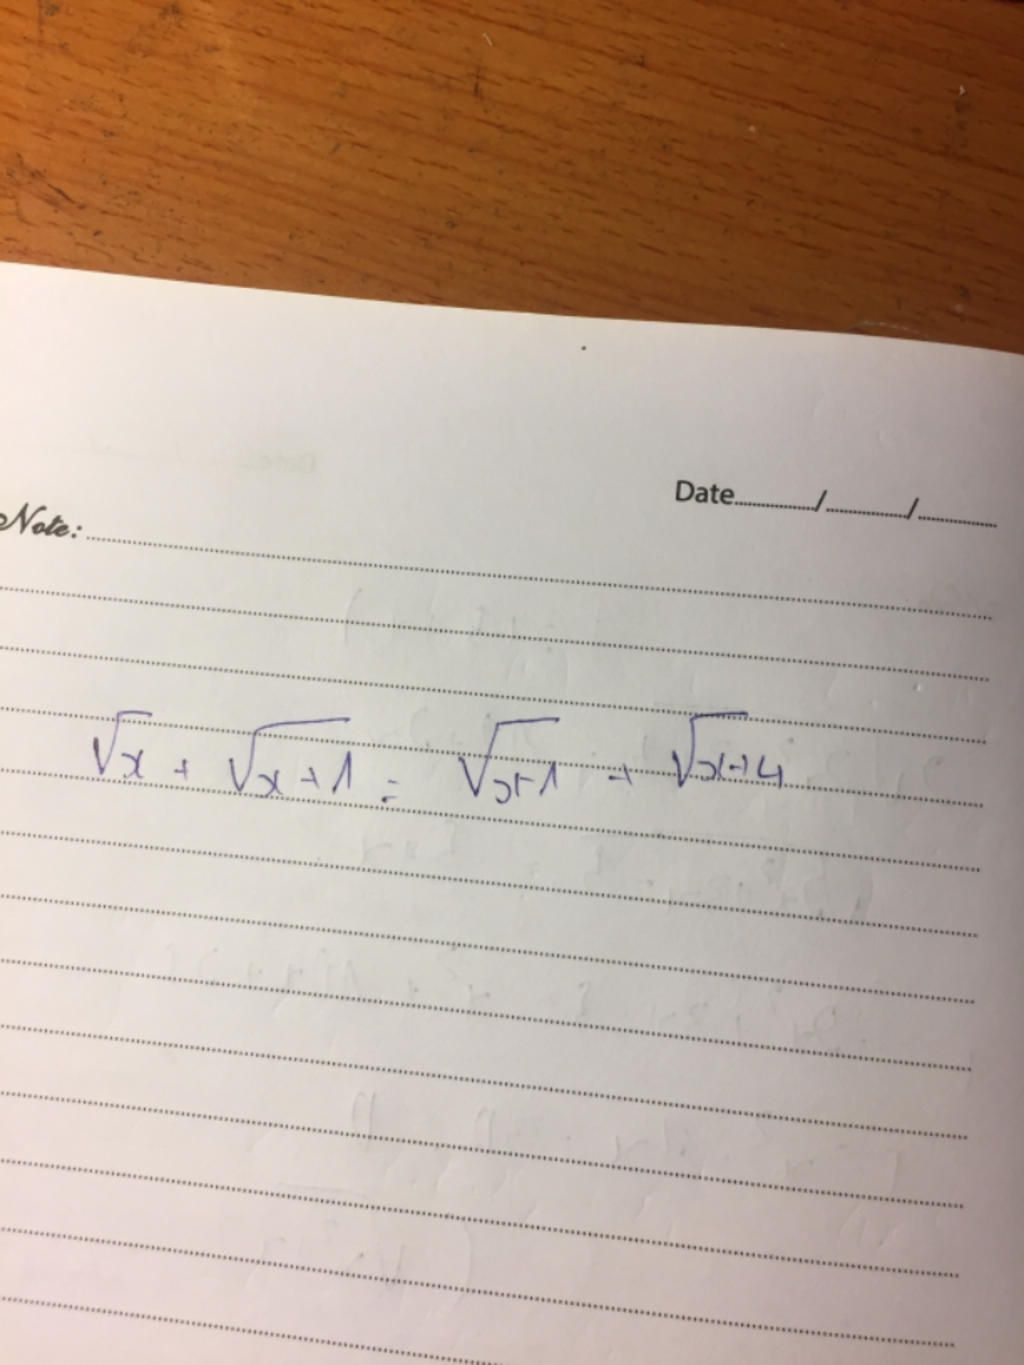 Date............/............/............
Note:
√x + √x+1 = √x-1 + √x+4